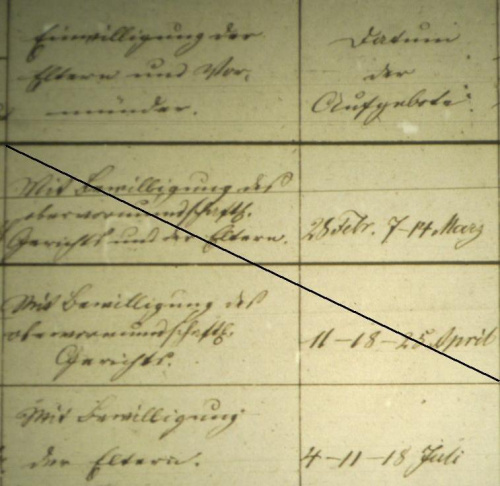 Einwilligung der
Eltern und Vor-
münder.
Datum
der
Aufgebote.
Mit Bewilligung des
obervormundschaftl.
Gerichts und der Eltern.
28 Febr. 7-14 März
Mit Bewilligung des
obervormundschaftl.
Gerichts.
11-18-25 April
Mit Bewilligung
der Eltern.
4-11-18 Juli